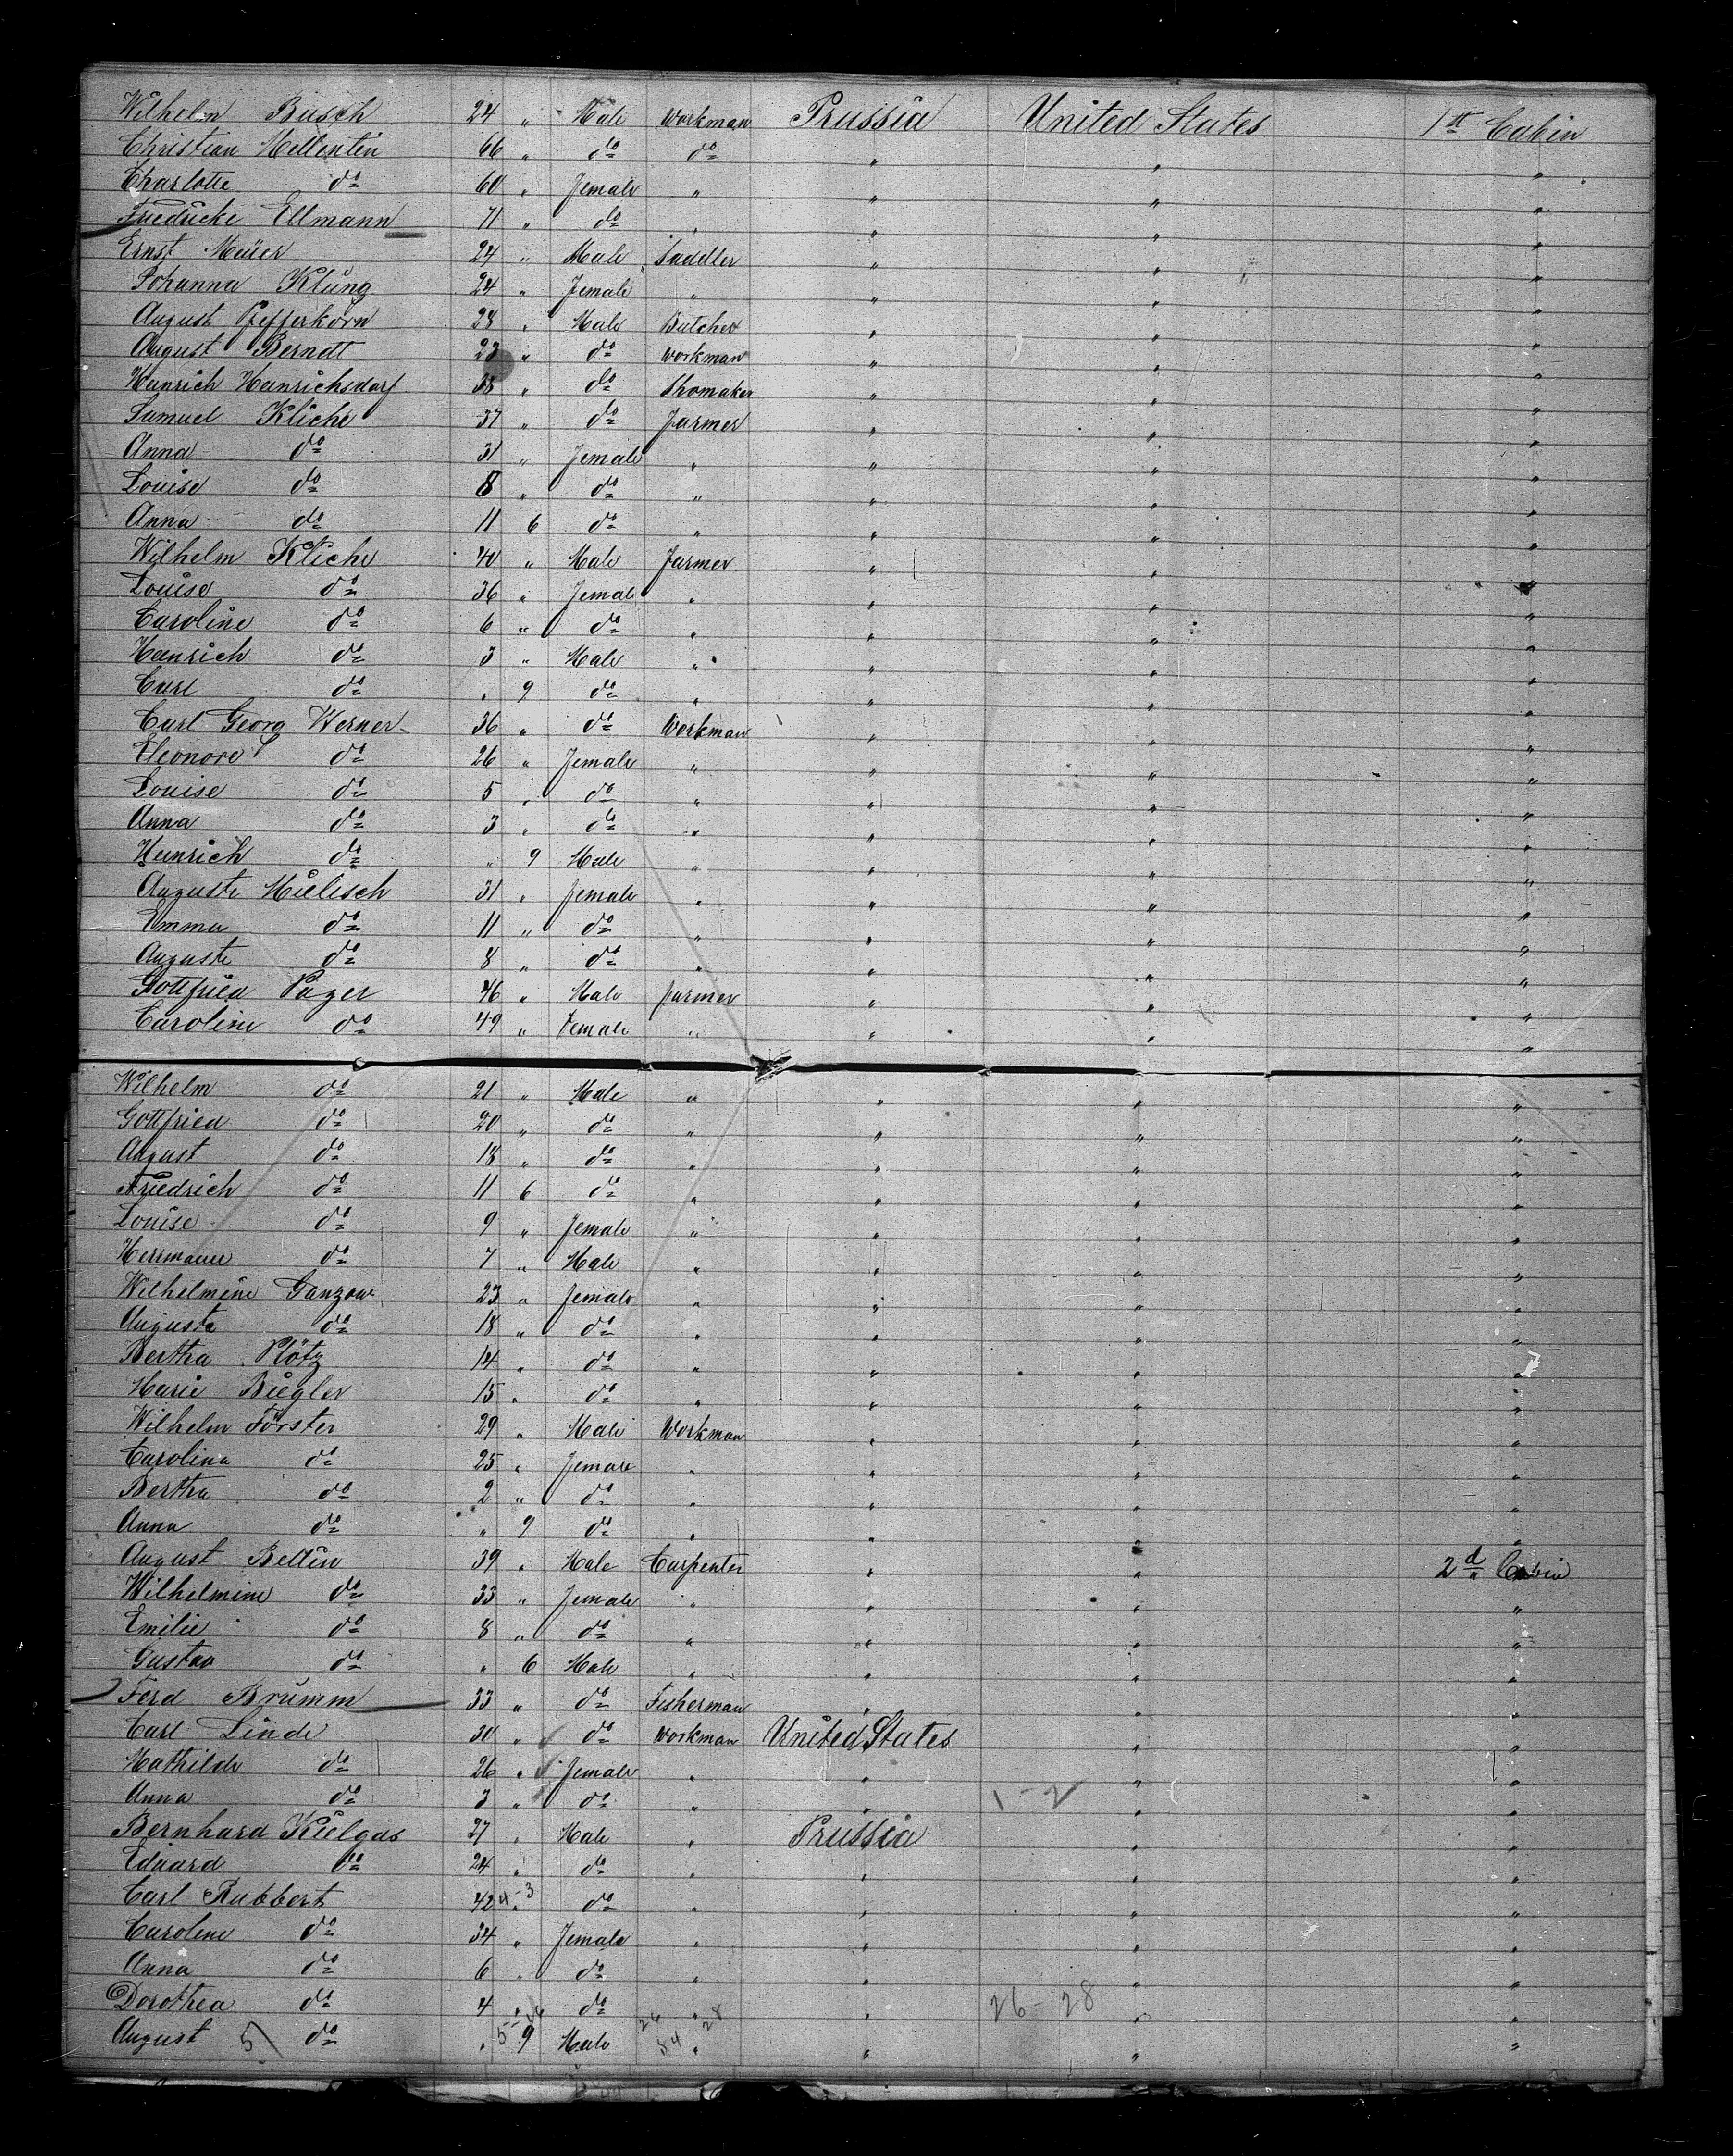 Wilhelm Busch 24 " Male Workman Prussia United States 1st Cabin
Christian Mellentin 66 " do do " " "
Charlotte do 60 " Female " " " "
Friedricke Ellmann 71 " do " " " "
Ernst Meier 24 " Male Saddler " " "
Johanna Klung 24 " Female " " " "
August Pfefferkorn 28 " Male Butcher " " "
August Berndt 23 " do workman " " "
Heinrich Heinrichsdorf 38 " do Shomaker " " "
Samuel Kliche 37 " do Farmer " " "
Anna do 31 " Female " " " "
Louise do 8 " do " " " "
Anna do 11 6 do " " " "
Wilhelm Kliche 40 " Male Farmer " " "
Louise do 36 " Female " " " "
Caroline do 6 " do " " " "
Heinrich do 3 " Male " " " "
Carl do " 9 do " " " "
Carl Georg Werner 36 " do Workman " " "
Eleonore do 26 " Female " " " "
Louise do 5 " do " " " "
Anna do 3 " do " " " "
Heinrich do " 9 Male " " " "
Auguste Mielisch 31 " Female " " " "
Emma do 11 " do " " " "
Auguste do 8 " do " " " "
Gottfried Pager 46 " Male farmer " " "
Caroline do 49 " Female " " " "
Wilhelm do 21 " Male " " " "
Gottfried do 20 " do " " " "
August do 18 " do " " " "
Friedrich do 11 6 do " " " "
Louise do 9 " Female " " " "
Herrmann do 7 " Male " " " "
Wilhelmine Ganzow 23 " Female " " " "
Augusta do 18 " do " " " "
Bertha Plötz 14 " do " " " "
Marie Biegler 15 " do " " " "
Wilhelm Förster 29 " Male Workman " " "
Carolina do 25 " Female " " " "
Bertha do 2 " do " " " "
Anna do " 9 do " " " "
August Bellin 39 " Male Carpenter " " 2d Cabin
Wilhelmine do 33 " Female " " " "
Emilie do 8 " do " " " "
Gustav do " 6 Male " " " "
Ferd Brumm 33 " do Fisherman " " "
Carl Linde 30 " do workman United States " "
Mathilde do 26 " Female " " " "
Anna do 3 " do " " 1-2 " "
Bernhard Kielgas 27 " Male " Prussia " "
Eduard do 24 " do " " " "
Carl Rubbert 42 4-3 " do " " " "
Caroline do 34 " Female " " " "
Anna do 6 " do " " " "
Dorothea do 4 " do " " 26-28 " "
August 5 do " 9 Male 84 " " " "